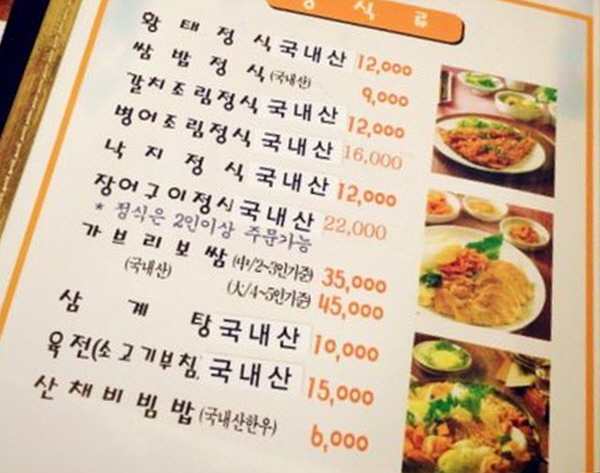 정 식 류
황 태 정 식 국내산 12,000
쌈 밥 정 식 (국내산) 9,000
갈치조림정식 국내산 12,000
병어조림정식 국내산 16,000
낙 지 정 식 국내산 12,000
장어구이정식 국내산 22,000
* 정식은 2인이상 주문가능
가브리보쌈 (中/2~3인기준) 35,000
(국내산) (大/4~5인기준) 45,000
삼 계 탕 국내산 10,000
육전(소고기부침) 국내산 15,000
산채비빔밥 (국내산한우) 6,000